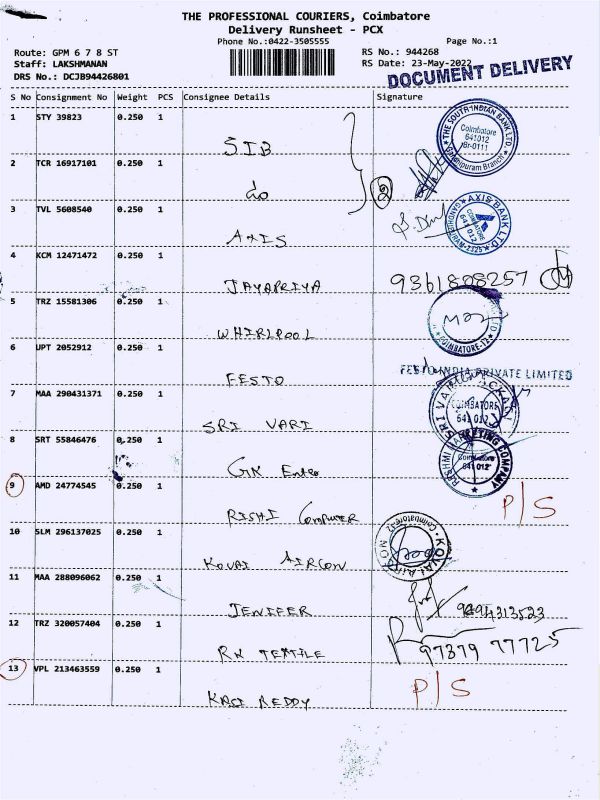 THE PROFESSIONAL COURIERS, Coimbatore
Delivery Runsheet - PCX
Phone No.:0422-3505555
Page No.:1
Route: GPM 6 7 8 ST
RS No.: 944268
Staff: LAKSHMANAN
RS Date: 23-May-2022
DRS No.: DCJB94426801
DOCUMENT DELIVERY
S No Consignment No Weight PCS Consignee Details Signature
1 STY 39823 0.250 1
SIB
THE SOUTH INDIAN BANK LTD.
Coimbatore
641012
Br-0111
Branch
2 TCR 16917101 0.250 1
do
2
3 TVL 5608540 0.250 1
AXIS
AXIS BANK LTD.
COIMBATORE
641 012
4 KCM 12471472 0.250 1
JAYAPRIYA 9361808257
5 TRZ 15581306 0.250 1
WHIRLPOOL
COIMBATORE-12
6 UPT 2052912 0.250 1
FESTO
FESTO INDIA PRIVATE LIMITED
7 MAA 290431371 0.250 1
SRI VARI
COIMBATORE
641 012
8 SRT 55846476 0.250 1
GK Entre
RASHMI MARKETING COMPANY
Coimbatore
641 012
9 AMD 24774545 0.250 1
RISHI Computer P/S
10 SLM 296137025 0.250 1
KOVAI AIRCON
KOVAI AIRCON
Coimbatore-12
11 MAA 288096062 0.250 1
JENIFER 9894313523
12 TRZ 320057404 0.250 1
RK TEXTILE 97879 77725
13 VPL 213463559 0.250 1
KASI REDDY P/S